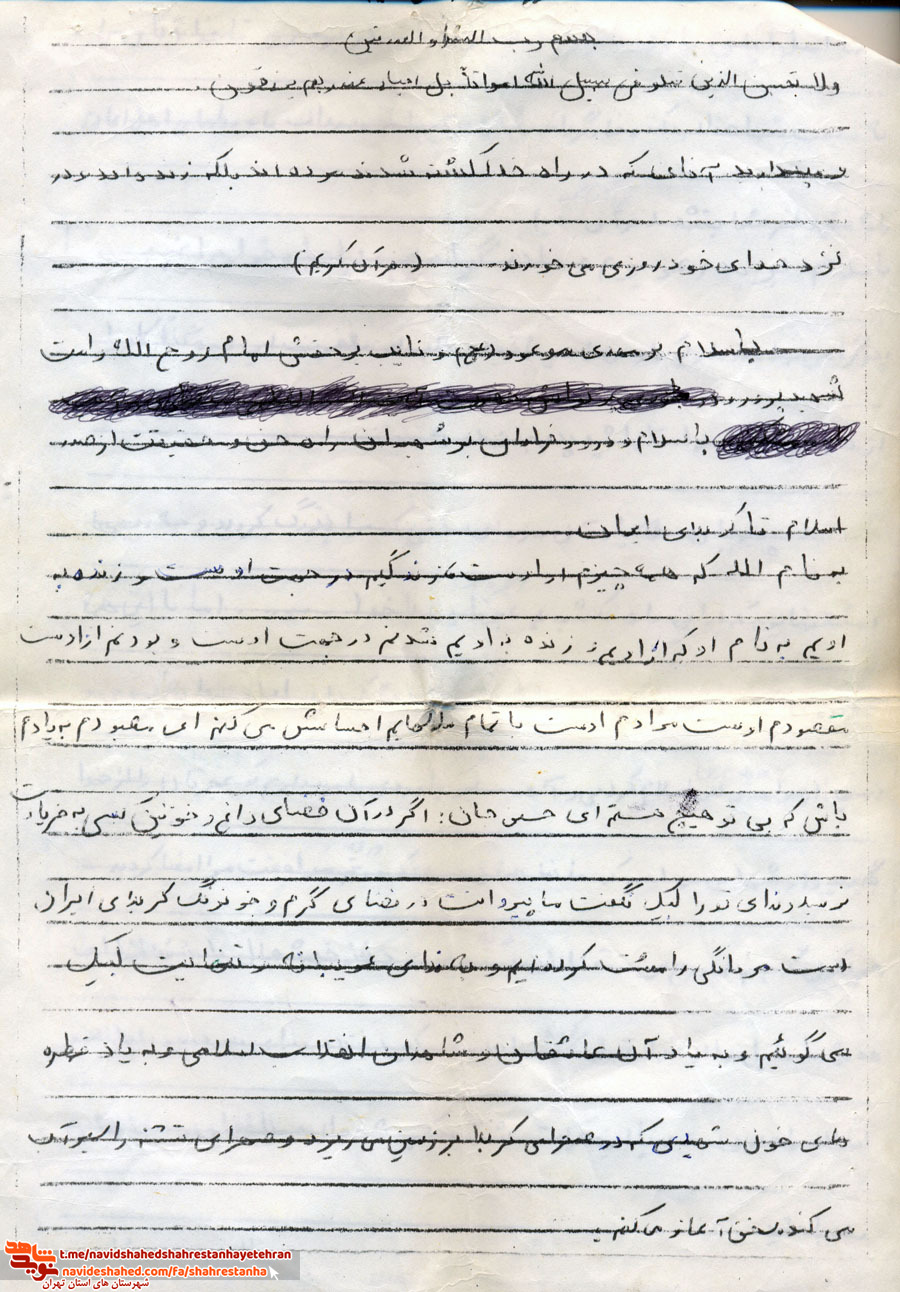 بسم رب الشهداء و الصدیقین
ولا تحسبن الذین قتلو فی سبیل الله امواتاً بل احیاء عند ربهم یرزقون.
مپندارید آنهای که در راه خدا کشته شدند مرده اند بلکه زنده اند و در
نزد خدای خود روزی می خورند (قرآن کریم)
با سلام بر مهدی موعود (عج) و نایب برحقش امام روح الله و امت
شهید پرور و
با سلام و درود فراوان بر شهیدان راه حق و حقیقت از صدر
اسلام تا کربلای ایران.
به نام الله که همه چیزم از اوست، زندگیم در جهت اوست و زنده به
اویم به نام او که از اویم، زنده به اویم شدنم در جهت اوست و بودنم از اوست
معبودم اوست مرادم اوست با تمام سلولهایم احساسش می کنم ای معبودم به یادم
باش که بی تو هیچ هستم ای حسین جان: اگر در آن فضای داغ و خونین کسی به فریادت
نرسید و ندای تو را لبیک نگفت ما پیروانت در فضای گرم و خونرنگ کربلای ایران
دست مردانگی را مشت کرده ایم و به ندای غریبانه و تنهائیت لبیک
می گوئیم و به یاد آن عاشقان و شاهدان انقلاب اسلامی و به یاد قطره
های خون شهیدی که در صحرای کربلا بر زمین می ریزد و صحرای تشنه را سیر آب
می کند سخن آغاز می کنم.
شاهد
نوید
t.me/navidshahedshahrestanhayetehran
navideshahed.com/fa/shahrestanha
شهرستان های استان تهران